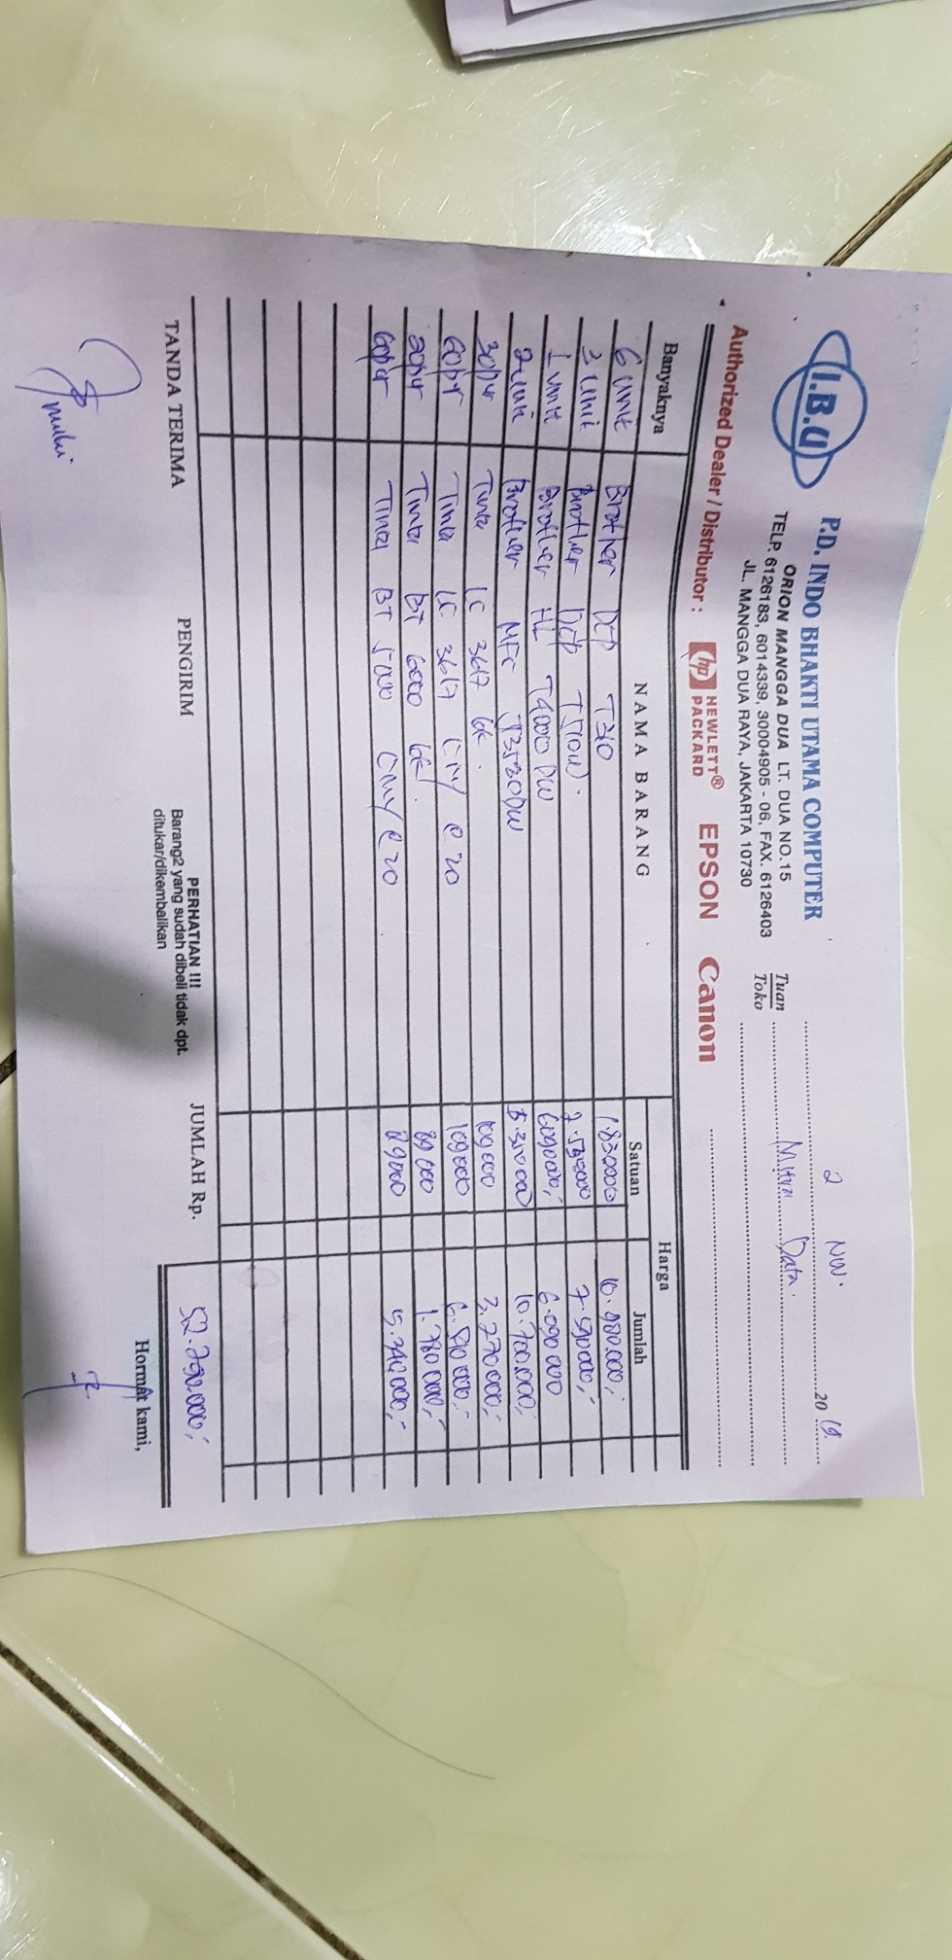 I.B.U
P.D. INDO BHAKTI UTAMA COMPUTER
ORION MANGGA DUA LT. DUA NO.15
TELP. 6126183, 6014339, 30004905 - 06, FAX. 6126403
JL. MANGGA DUA RAYA, JAKARTA 10730
2 Nov. 20 19.
Tuan
Toko
Mitra Data.
Authorized Dealer / Distributor : hp HEWLETT® PACKARD EPSON Canon
Banyaknya NAMA BARANG Harga
Satuan Jumlah
6 unit Brother DCP T310 1.830000 10.980.000,-
3 unit Brother DCP T510W. 2.530000 7.590000,-
1 unit Brother HL T4000 DW 6090000,- 6.090 000
2 unit Brother MFC J3530DW 5.350000 10.700.000,-
30pcs Tinta LC 3617 BK. 109000 3.270000,-
60pcs Tinta LC 3617 CMY @ 20 109000 6.540000,-
20pcs Tinta BT 6000 BK. 89 000 1.780 000,-
60pcs Tinta BT 5000 CMY @ 20 89000 5.340 000,-
TANDA TERIMA PENGIRIM
PERHATIAN !!!
Barang2 yang sudah dibeli tidak dpt.
ditukar/dikembalikan
JUMLAH Rp. 52.290.000,-
Hormat kami,